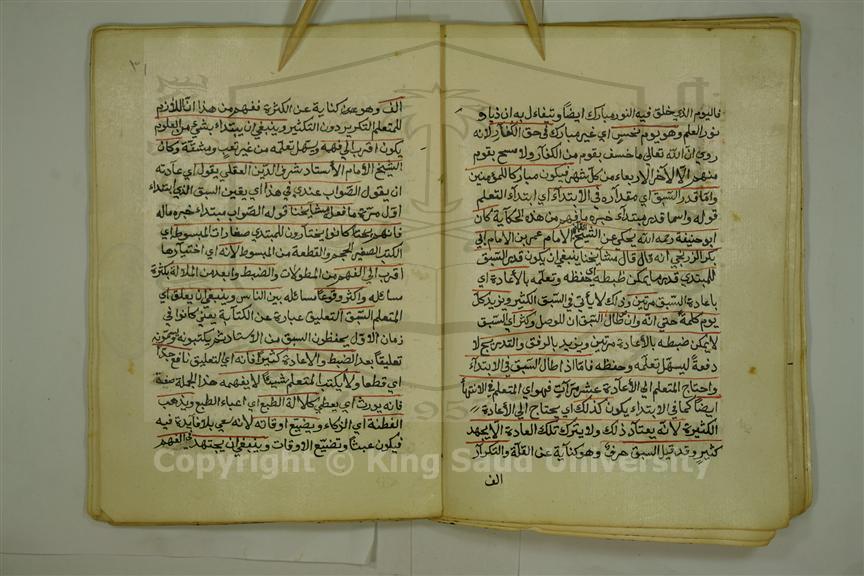 فاليوم الذي خلق فيه النور مبارك ايضا وتفاءل به ان ذياد
نور العلم وهو يوم نحس اي غير مبارك في حق الكفار لانه
روي ان الله تعالى ما خسف بقوم من الكفار ولا مسح بقوم
منهم الا لاخر الاربعاء من كل شهر فيكون مباركا للمؤمنين
واما قدر السبق اي مقداره في الابتداء اي ابتداء التعلم
قوله واما قدر مبتداء خبره ما فهم من هذه الحكاية كان
ابو حنيفة رحمه الله يحكى عن الشيخ الامام عمر بن الامام ابي
بكر الزرنجي انه قال قال مشايخنا ينبغي ان يكون قدر السبق
للمبتدي قدر ما يمكن ضبطه اي حفظه وتعلمه بالاعادة اي
باعادة السبق مرتين وذلك لا يأتي في السبق الكثير ويزيد كل
يوم كلمة حتى انه وان طال السبق ان للوصل وكثر اي السبق
لا يمكن ضبطه بالاعادة مرتين ويزيد بالرفق والتدريج لا
دفعة ليسهل تعلمه وحفظه فاما اذا طال السبق في الابتداء
واحتاج المتعلم الى الاعادة عشر مرات فهو اي المتعلم في الانتهاء
ايضا كما في الابتداء يكون كذلك اي يحتاج الى الاعادة
الكثيرة لانه يعتاد ذلك ولا يترك تلك العادة الا بجهد
كثير وقد قيل السبق حرف وهو كناية عن القلة والتكرار
الف
٣١
الف وهو كناية عن الكثرة ففهم من هذا ان اللازم
للمتعلم التكرير دون التكثير وينبغي ان يبتداء بشيء من العلوم
يكون اقرب الى فهمه ويسهل تعلمه من غير تعب ومشقة وكان
الشيخ الامام الاستاد شرف الدين العقيلي يقول اي عادته
ان يقول الصواب عندي في هذا اي يقين السبق الذي ابتداء
اول مرة ما فعله مشايخنا قوله الصواب مبتداء خبره ما له
فانهم كانوا يختارون للمبتدي صغارات المبسوط اي
الكتب الصغير الحجم والقطعة من المبسوط لانه اي اختيارها
اقرب الى الفهم من المطولات والضبط وابعد من الملالة بكثرة
مسائله واكثر وقوعا مسائله بين الناس وينبغي ان يعلق اي
المتعلم السبق التعليق عبارة عن الكتابة يعني كانوا في
زمان الاول يحفظون السبق من الاستاد ثم يكتبونه
تعليقا بعد الضبط والاعادة كثيرا فانه اي التعليق نافع جدا
اي قطعا ولا يكتب المتعلم شيئا لا يفهمه هذا الجملة صفة
فانه يورث اي يعطي كلالة الطبع اي اعياء الطبع ويذهب
الفطنة اي الذكاء ويضيع اوقاته لانه سعي بلا فايدة فيه
فيكون عبثا وتضيع الاوقات وينبغي ان يجتهد في الفهم
Copyright © King Saud University
1957